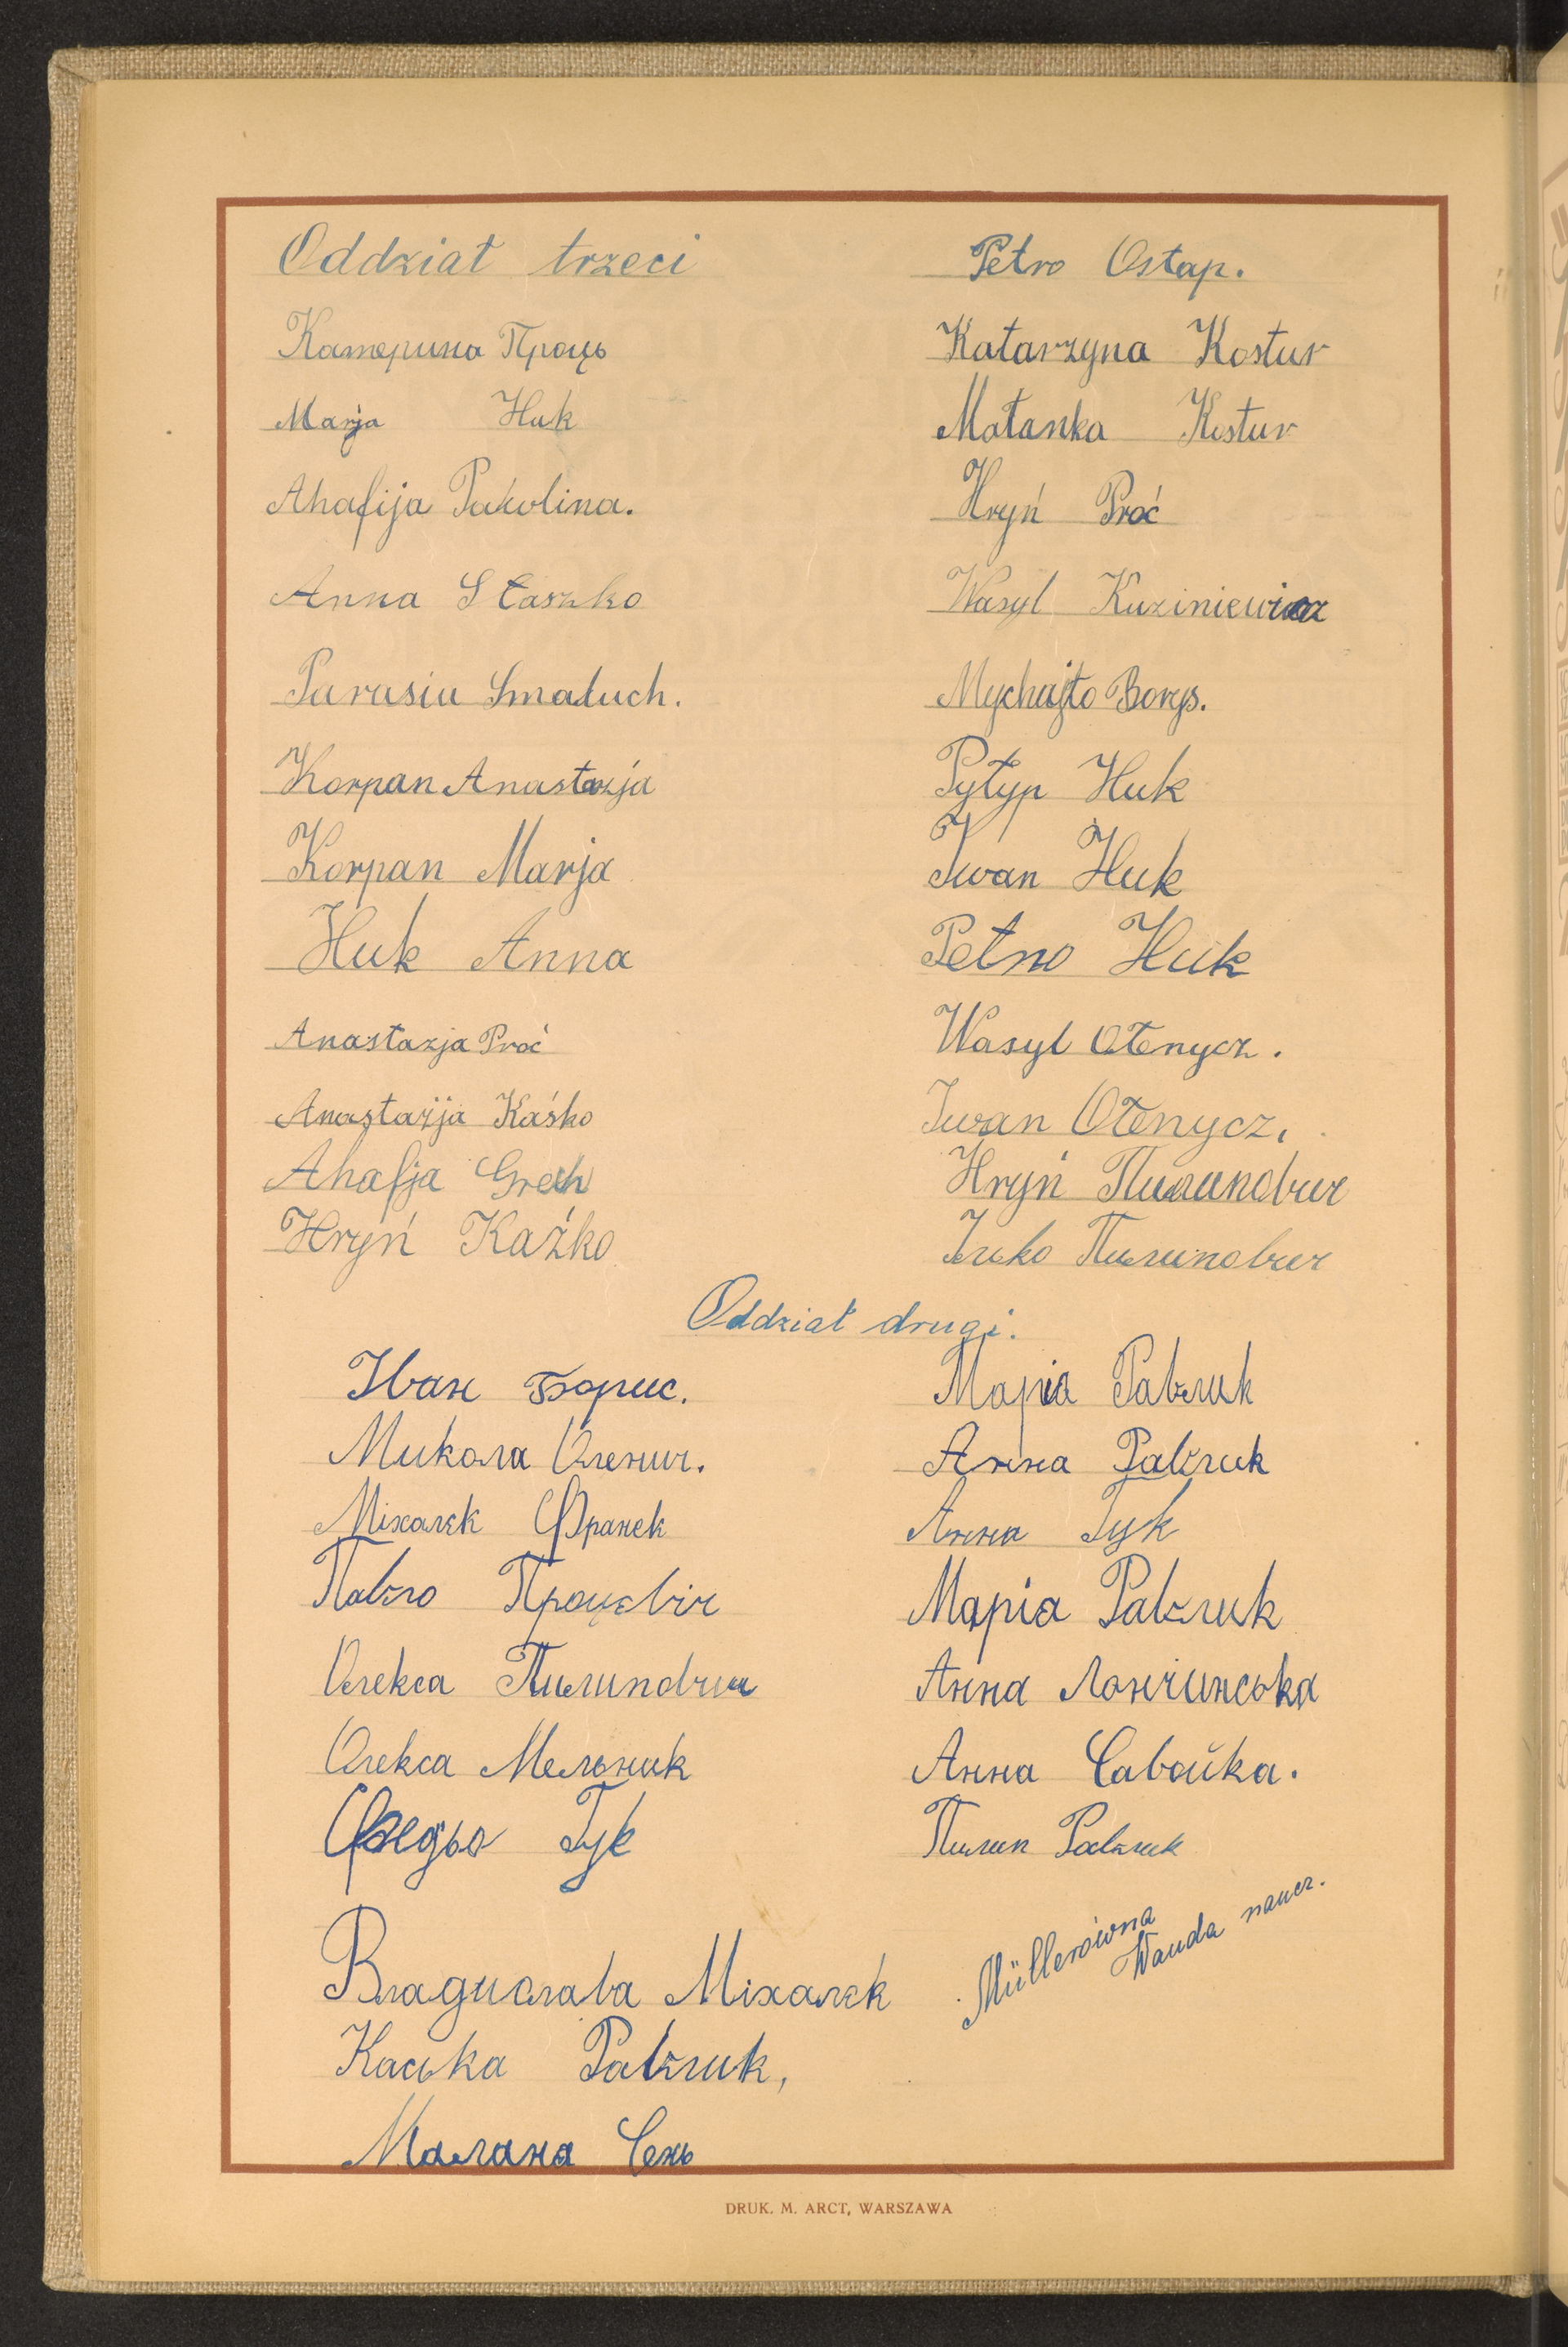 Oddział trzeci
Катерина Проць
Marja Huk
Ahafija Pakolina.
Anna Staszko
Parasia Smałuch.
Korpan Anastazja
Korpan Marja
Huk Anna
Anastazja Proć
Anastazja Kaśko
Ahafja Grech
Hryń Kaźko
Petro Ostap.
Katarzyna Kostur
Małanka Kostur
Hryń Proć
Wasyl Kuziniewicz
Mychajło Borys.
Pyłyp Huk
Iwan Huk
Petro Huk
Wasyl Ołenycz.
Iwan Ołenycz.
Hryń Пилипович
Ілько Пилипович
Oddział drugi.
Іван Борис.
Микола Оленич.
Міхалєк Франек
Павло Процєвіч
Олекса Пилипович
Олекса Мельник
Федьо Гук
Владислава Міхалєк
Каська Равлик,
Малана Сень
Маріа Равлик
Анна Равлик
Анна Гук
Маріа Равлик
Анна Лончинська
Анна Савойка.
Пилип Равлик
Müllerówna
Wanda naucz.
DRUK. M. ARCT, WARSZAWA